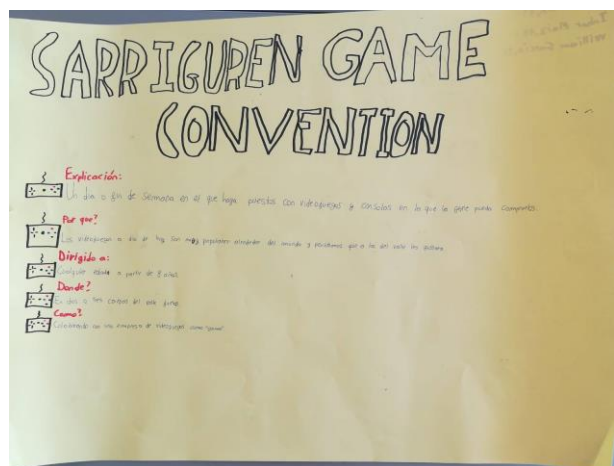 SARRIGUREN GAME
CONVENTION
Explicación:
Un dia o fin de semana en el que haya puestos con videojuegos y consolas en lo que la gente pueda comprarlos.
Por que?
Los videojuegos a dia de hoy son muy populares alrededor del mundo y pensamos que a la
Dirigido a:
Cualquier a partir de 8 años
Donde?
En dos o tres del
Como?
Coordinando con una empresa de videojuegos como "game"